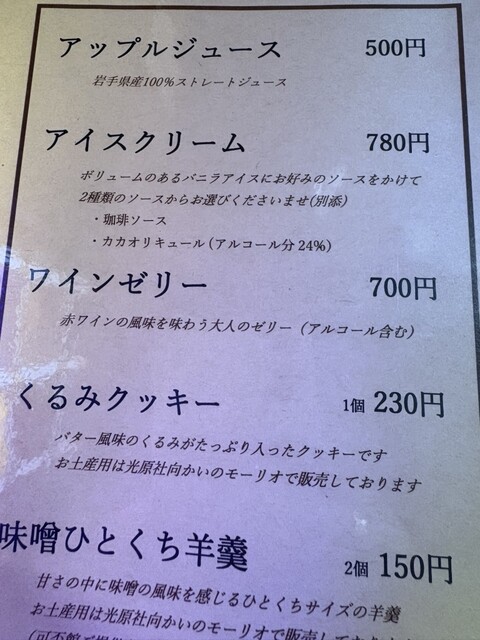 アップルジュース 500円
岩手県産100%ストレートジュース
アイスクリーム 780円
ボリュームのあるバニラアイスにお好みのソースをかけて
2種類のソースからお選びくださいませ(別添)
・珈琲ソース
・カカオリキュール(アルコール分24%)
ワインゼリー 700円
赤ワインの風味を味わう大人のゼリー(アルコール含む)
くるみクッキー 1個 230円
バター風味のくるみがたっぷり入ったクッキーです
お土産用は光原社向かいのモーリオで販売しております
味噌ひとくち羊羹 2個 150円
甘さの中に味噌の風味を感じるひとくちサイズの羊羹
お土産用は光原社向かいのモーリオで販売しております